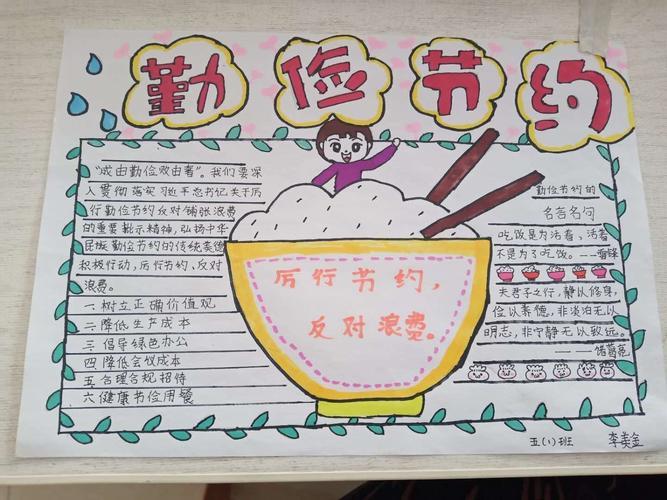 勤俭节约
"成由勤俭败由奢"。我们要深
入贯彻落实习近平总书记关于厉
行勤俭节约反对铺张浪费
的重要批示精神，弘扬中华
民族勤俭节约的传统美德
积极行动，厉行节约、反对
浪费。
一 树立正确价值观
二 降低生产成本
三 倡导绿色办公
四 降低会议成本
五 合理合规招待
六 健康节俭用餐
厉行节约，
反对浪费。
勤俭节约的
名言名句
吃饭是为活着、活着
不是为了吃饭。——雷锋
夫君子之行，静以修身，
俭以养德，非淡泊无以
明志，非宁静无以致远。
———诸葛亮
五(1)班 李美金